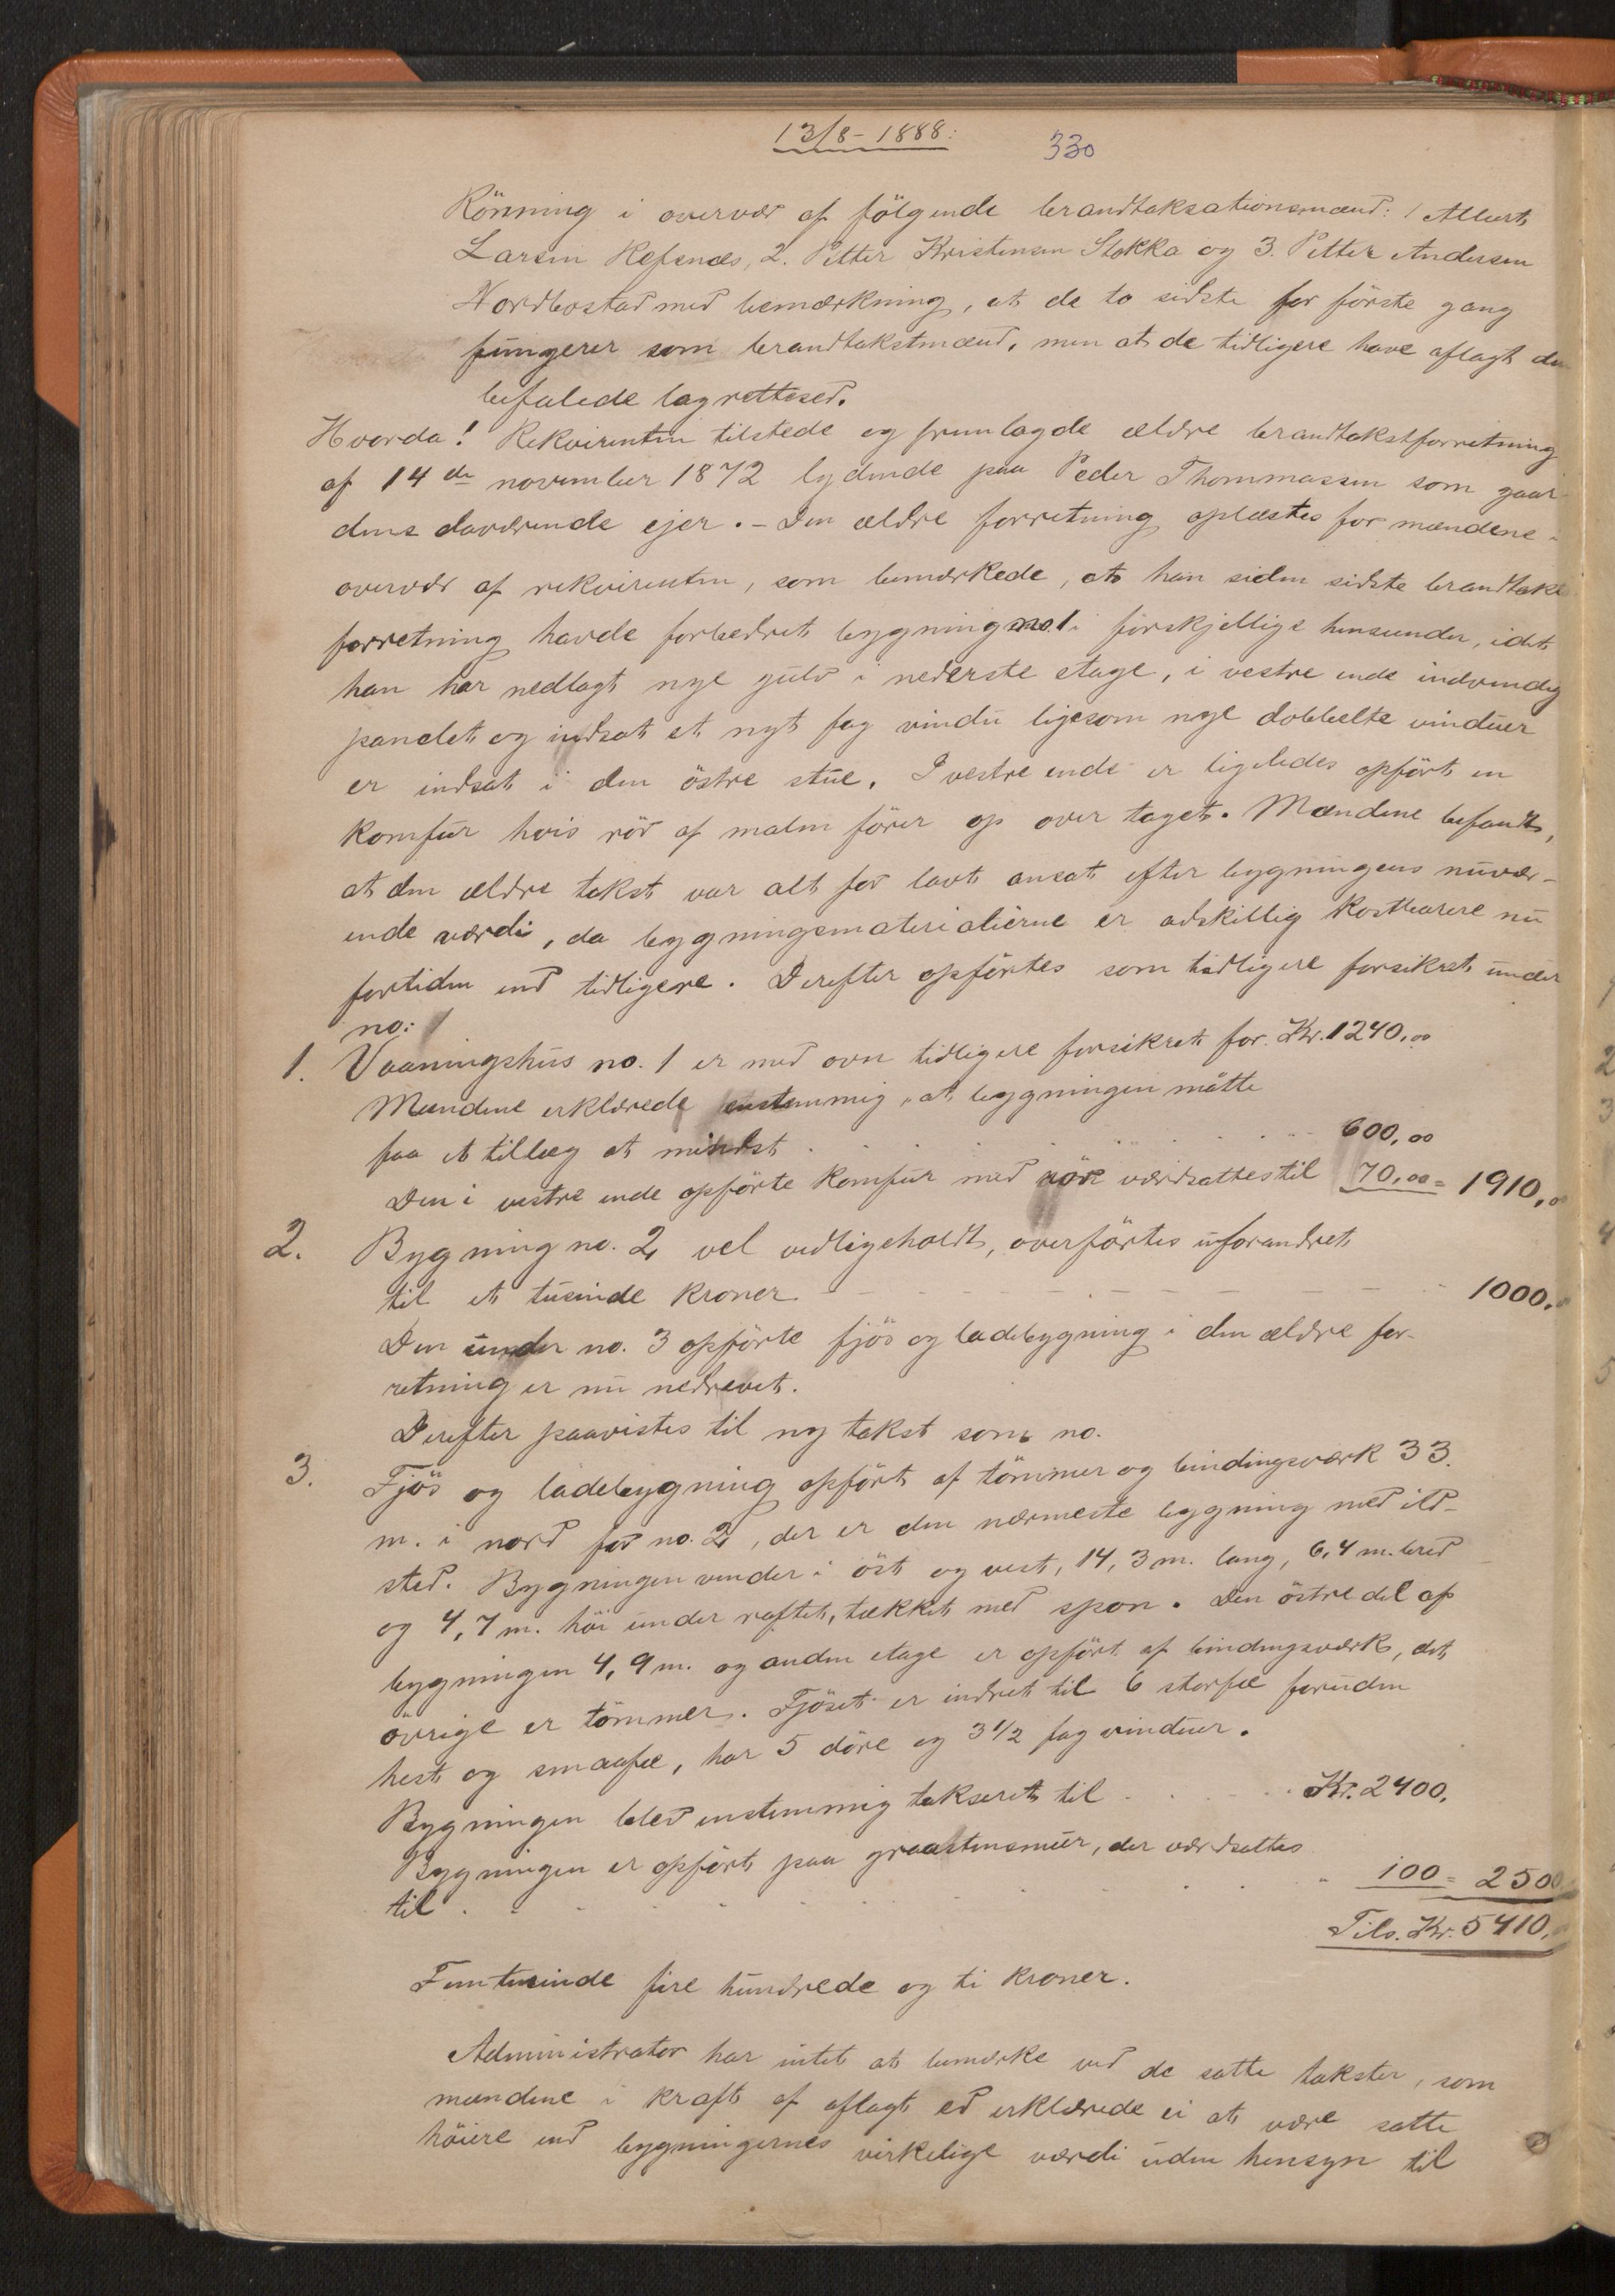 13/8-1888:
330
Rönning i overvær af fölgende brandtaksationsmænd: 1 Albert
Larsen Refsnæs, 2. Petter Kristensen Stokka og 3. Petter Andersen
Nordbostad med bemærkning, at de to sidste for förste gang
fungerer som brandtakstmænd, men at de tidligere have aflagt den
befalede lagrettesed.
Hvorda! Rekvirenten tilstede og fremlagde ældre brandtakstforretning
af 14de november 1872 lydende paa Peder Thommassen som gaar-
dens daværende ejer. - Den ældre forretning oplæstes for mændene i
overvær af rekvirenten, som bemærkede, at han siden sidste brandtakst
forretning havde forbedret bygning no. 1 i forskjellige henseender, idet
han har nedlagt nye gulv i nederste etage, i vestre ende indvendig
panelet og indsat et nyt fag vindu ligesom nye dobbelte vinduer
er indsat i den östre stue. I vestre ende er ligeledes opfört en
komfur hvis rör af malm förer op over taget. Mændene befandt,
at den ældre takst var alt for lavt ansat efter bygningens nuvær-
ende værdi, da bygningsmaterialierne er adskillig kostbarere nu
fortiden end tidligere. Derefter opförtes som tidligere forsikret under
no: 1
1. Vaaningshus no. 1 er med ovn tidligere forsikret for Kr. 1240,00
Mændene erklærede enstemmig, at bygningen måtte
faa et tillæg at mindst . . . . . . 600,00
Den i vestre ende opförte komfur med rör værdsattes til 70,00 = 1910,00
2. Bygning no. 2, vel vedligeholdt, overförtes uforandret
til et tusinde kroner - - - - - - - 1000,
Den under no. 3 opförte fjös og ladebygning i den ældre for-
retning er nu nedrevet.
Derefter paavistes til ny takst som no.
3. Fjös og ladebygning opfört af tömmer og bindingsværk 33.
m. i nord for no. 2, der er den nærmeste bygning med ild-
sted. Bygningen vender i öst og vest, 14,3 m. lang, 6,4 m. bred
og 4,7 m. höi under raftet, tækket med spon. Den östre del af
bygningen 4,9 m. og anden etage er opfört af bindingsværk, det
övrige er tömmer. Fjöset er indret til 6 storfæ foruden
hest og smaafæ, har 5 döre og 3 1/2 fag vinduer.
Bygningen blev enstemmig takseret til . . . . Kr. 2400,
Bygningen er opfört paa graastensmur, der værdsattes
til . . . . . . . . " 100 = 2500
Tils. Kr. 5410,
Femtusinde fire hundrede og ti kroner.
Administrator har intet at bemærke ved de satte takster, som
mændene i kraft af aflagt ed erklærede ei at være satte
höiere end bygningernes virkelige værdi uden hensyn til